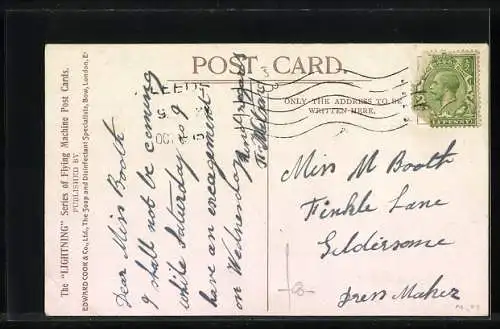 POST CARD.
The "LIGHTNING" Series of Flying Machine Post Cards.
PUBLISHED BY
EDWARD COOK & Co., Ltd., The Soap and Disinfectant Specialists, Bow, London, E.
ONLY THE ADDRESS TO BE
WRITTEN HERE.
LEEDS
OC
HALFPENNY
Dear Miss Booth
I shall not be coming
while Saturday as I
have an engagement
on Wednesday
Kind regards
Miss M Booth
Finkle Lane
Gildersome
Dress Maker